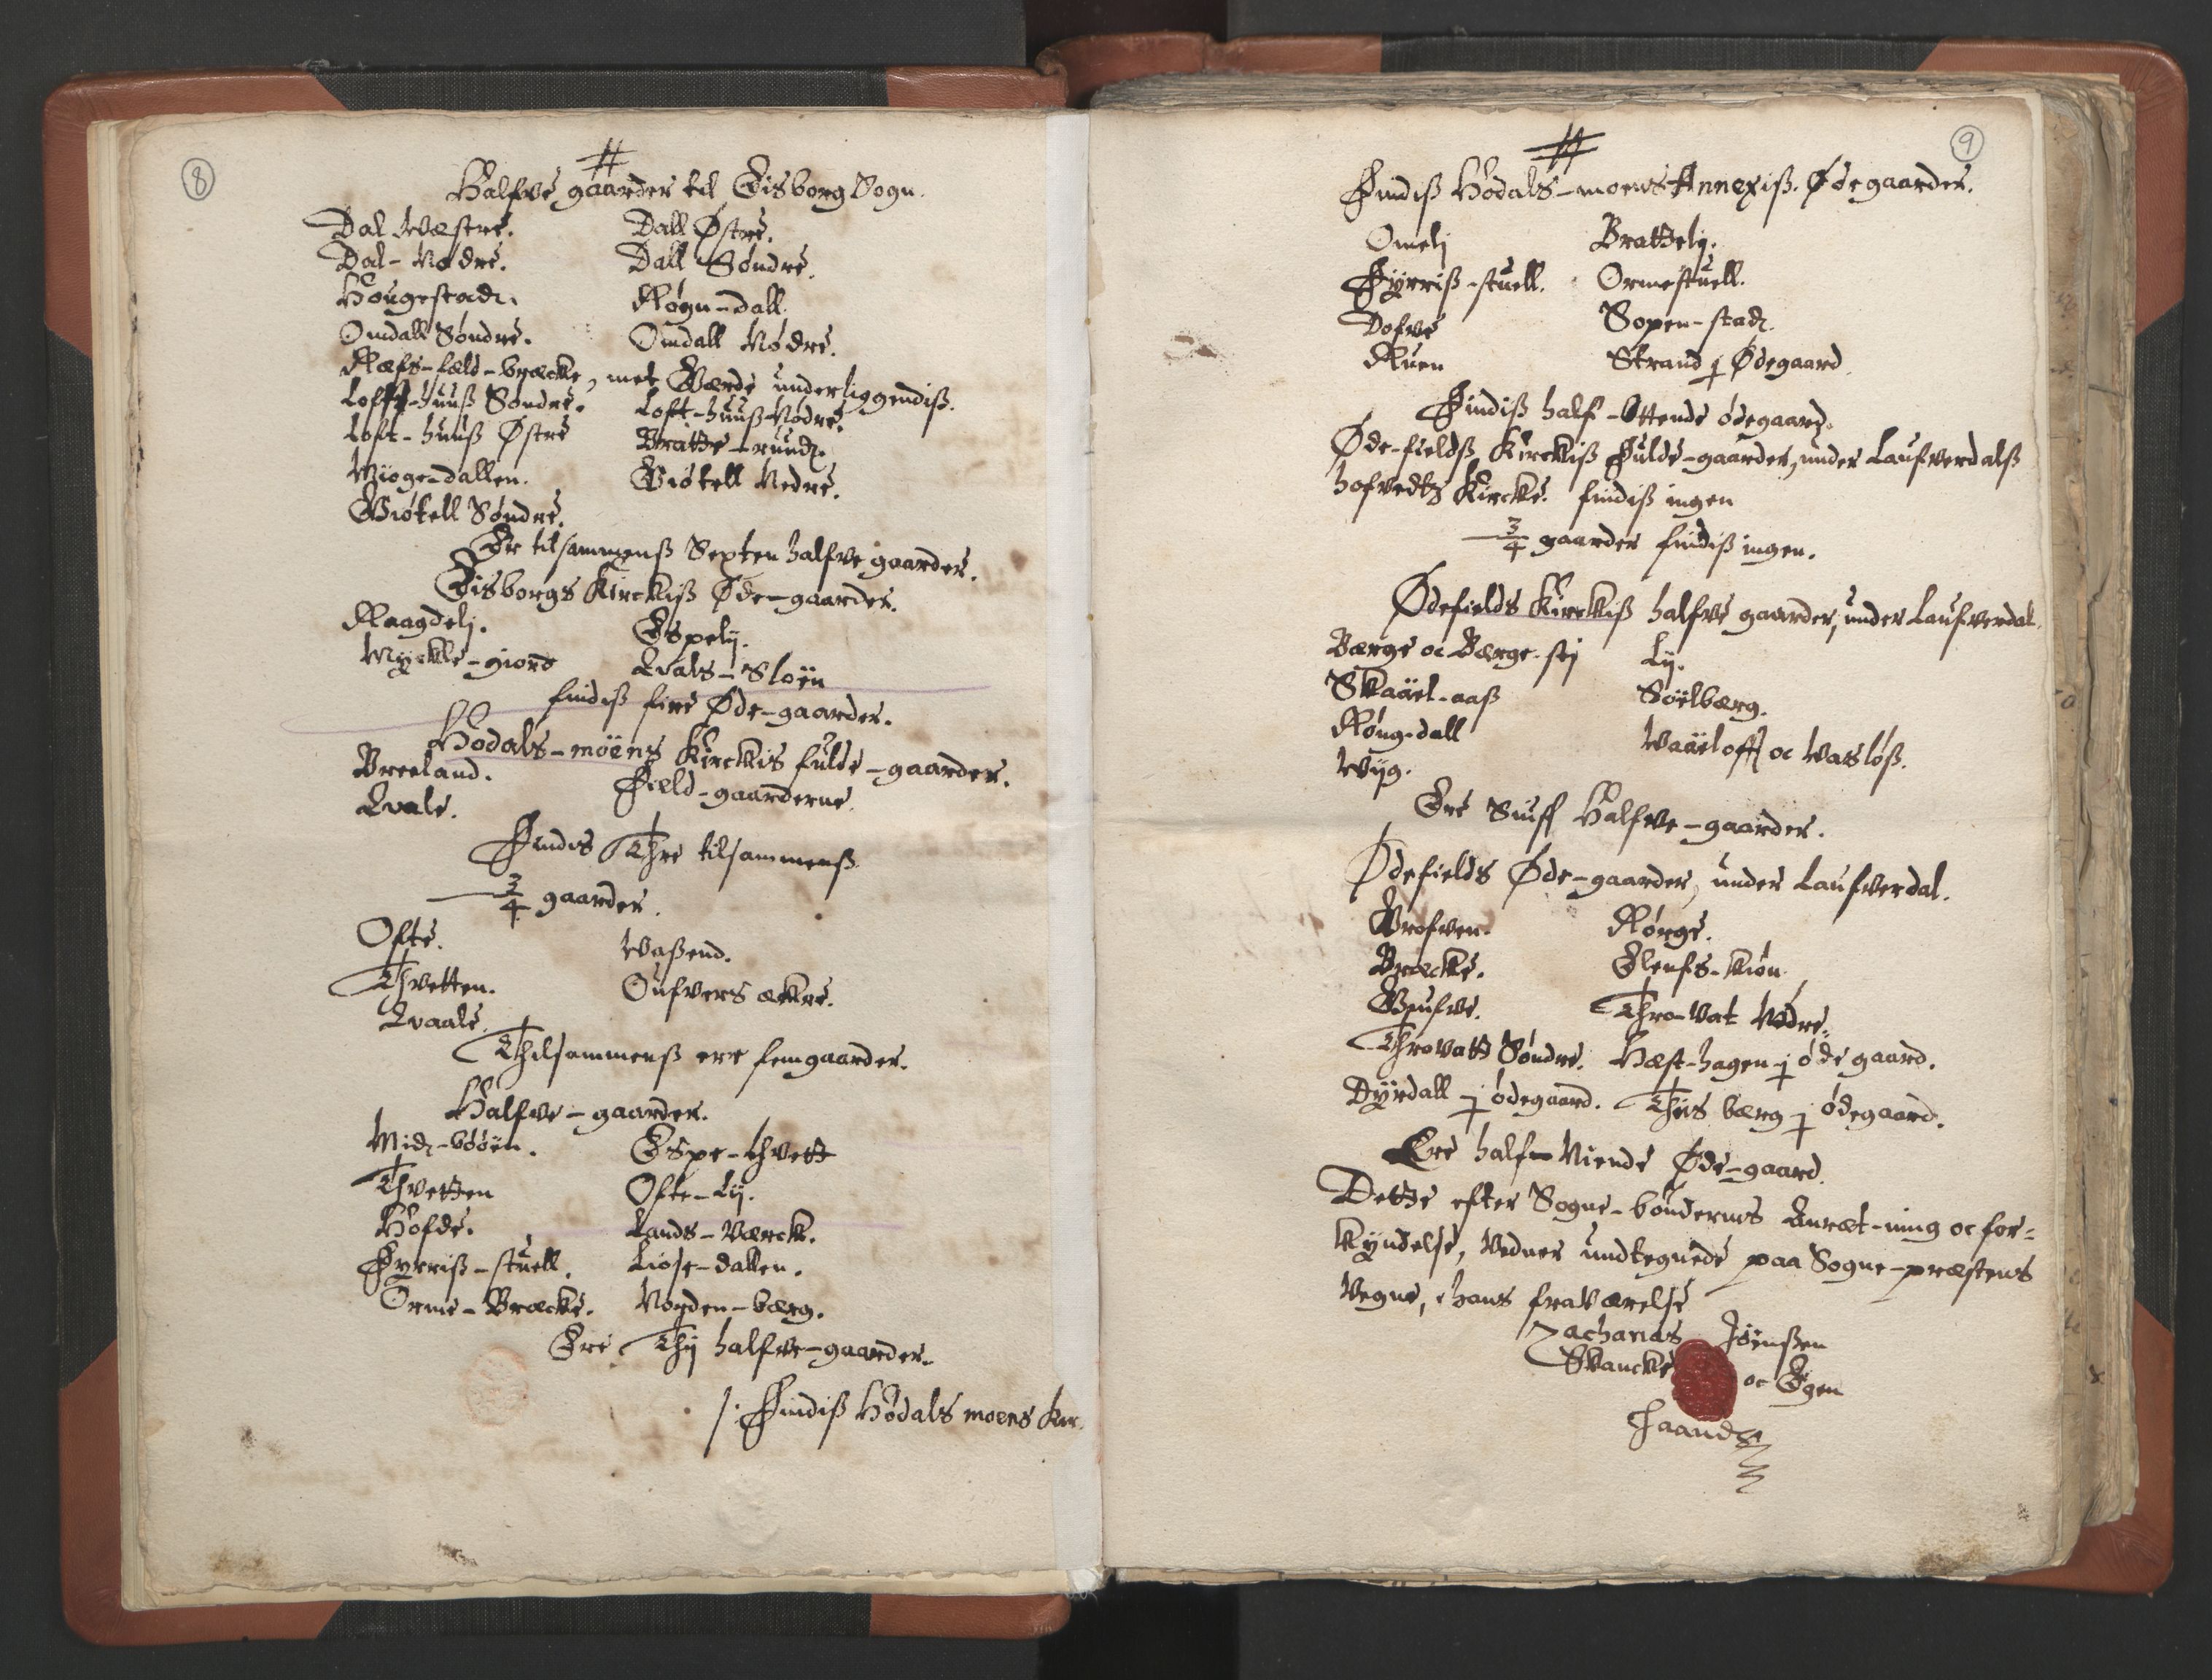 8
Halfve gaarder til Eisborg Sogn.
Dal Wæstre. Dall Østre.
Dal-Nødre. Dall Søndre.
Hougestad. Rogn-dall.
Omdall Søndre. Omdall Nødre.
Ræfs-fæld-bræcke, met Værde underliggendiß.
Lofft-huuß Søndre. Loft-huuß Nødre.
Loft-huuß Østre Bratte-rund.
Mioge-dallen. Giøtell Nedre.
Giøtell Søndre.
Er tilsammenß Sexten halfve gaarder.
Eisborgs Kirckiß Øde-gaarder.
Raagdelj. Espelij.
Myckle-giord Qvals-Sløin
findiß fire Øde-gaarder.
Hødals-moens Kirckis fulde-gaarder.
Breeland. Fieeld-gaarderne.
Qvale.
Findis Thre tilsammenß
3/4 gaarder.
Ofte. Waßend.
Thvetten. Oufvers ækre.
Qvaale.
Thilsammenß ere fem gaarder.
Halfve-gaarder.
Mid-bøøen. Espe-thvett
Thvetten Ofte-Lij.
Hofde. Lands-Værck.
Fyrriß-stuell. Liose-dallen.
Orme-Bræcke. Norden-bærg.
Ere Thij halfve-gaarder.
/: Findiß Hødals moens Kir.
9
Findiß Hødals-moens Annexiß. Ødegaarder.
Omelj Brattelij.
Fyrriß-stuell. Ormestuell.
Dofve Sopen-stad.
Ruen Strand j Ødegaard.
Findiß half-Ottende ødegaard.
Øde-fieldß Kirckiß fulde-gaarder, under Laufverdalß
hofvedts Kircke. findiß ingen
3/4 gaarder findiß ingen.
Ødefields Kirckiß halfve gaarder, under Laufverdal.
Bærge oc Bærge-stj Lij.
Skaaël-aaß Søëlbærg.
Røng-dall Waaëloff oc Wasløß.
Wijg.
Ere Siuff Halfve-gaarder.
Ødefields Øde-gaarder, under Laufverdal.
Grofven. Rørge.
Bræcke. Elenfs-kiøn.
Giufve. Thro-Vat Nødre.
Throvatt Søndre. Hæst-hagen j øde gaard.
Dyrdall j ødegaard. Thiis bærg j ødegaard.
Ere half-Niende Øde-gaard.
Dette efter Sogne-bøndernes Anræt-ning oc for-
kyndelse, Vedner undtegnede paa Sogne-præstens
Vegne, i hans fraværelse
Zacharias Jøenßen
Skancke oc Egen
Haand